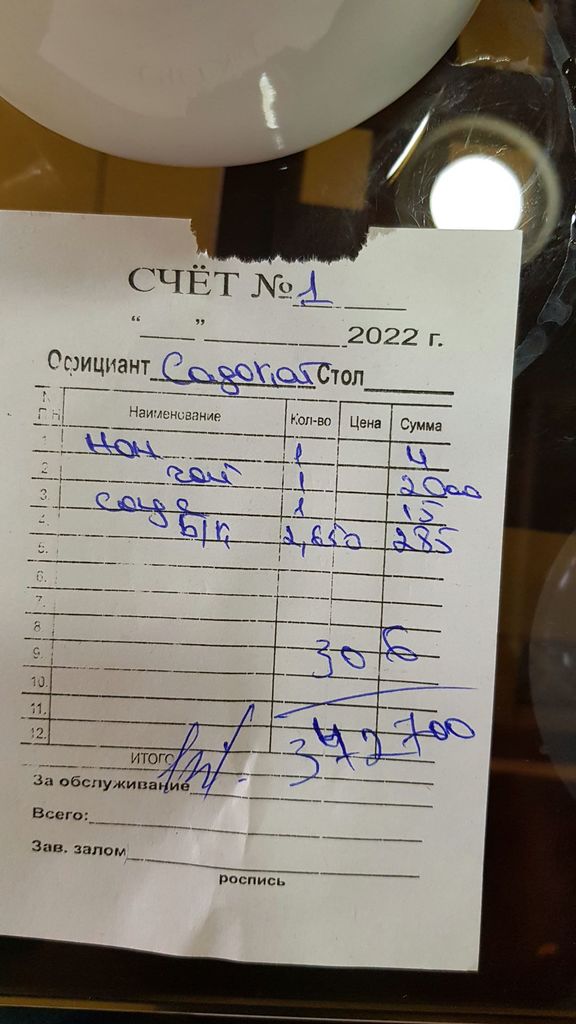 СЧЁТ № 1
“ ” 2022 г.
Официант Садокат Стол
N Наименование Кол-во Цена Сумма
П Н
1 нон 1 4
2 чай 1 2000
3. 1 15
4. 2,650 285
5.
6.
7.
8
9. 306
10.
11.
12. 372700
ИТОГО
За обслуживание
Всего:
Зав. залом
роспись